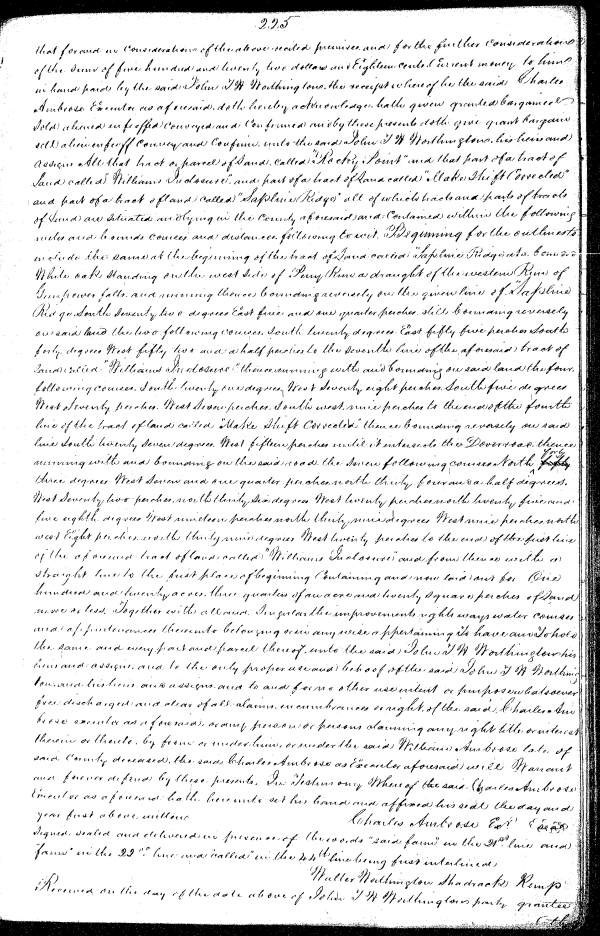 225
that for and in consideration of the above recited premises and for the further consideration
of the sum of five hundred and twenty two dollars and Eighteen cents Current money to him
in hand paid by the said John T W Worthington the receipt whereof he the said Charles
Ambrose Executor as aforesaid doth hereby acknowledge hath given granted bargained
Sold aliened enfeoffed conveyed and Confirmed and by these presents doth give grant bargain
sell alien enfeoff Convey and Confirm unto the said John T W Worthington his heirs and
assigns All that tract or parcel of Land called "Rocky Point" and that part of a tract of
Land called "Williams Inclosure" and part of a tract of Land called "Make Shift Corrected"
and part of a tract of Land called "Sapline Ridge" all of which tracts and parts of tracts
of Land are situated and lying in the County aforesaid and Contained within the following
metes and bounds courses and distances following to wit. Beginning for the outlines to
include the same at the beginning of the tract of Land called "Sapline Ridge" at a bounded
White oak standing on the west side of Piney Run a draught of the western Run of
Gunpowder falls and running thence bounding reversely on the given line of "Sapline
Ridge South Seventy two degrees East five and one quarter perches still bounding reversely
on said land the two following courses South twenty degrees East fifty five perches South
forty degrees West fifty two and a half perches to the seventh line of the aforesaid tract of
Land called "Williams Inclosure" thence running with and bounding on said land the four
following courses. South twenty one degrees West Seventy eight perches South five degrees
West Seventy perches. West Seven perches. South west nine perches to the end of the fourth
line of the tract of land called "Make Shift Corrected" thence bounding reversely on said
line South twenty seven degrees West fifteen perches until it intersects the Dover road thence
running with and bounding on the said road the Seven following courses North forty
three degrees West Seven and one quarter perches north thirty four and a half degrees.
West Seventy two perches, north thirty six degrees West twenty perches north twenty five and
five eighth degrees West nineteen perches north thirty nine degrees West nine perches north
west Eight perches north thirty nine degrees West twenty perches to the end of the first line
of the aforesaid tract of land called "Williams Inclosure" and from thence with a
straight line to the first place of beginning Containing and now laid out for One
hundred and twenty acres three quarters of an acre and twenty square perches of Land
more or less. Together with all and Singular the improvements rights ways water courses
and appurtenances thereunto belonging or in any wise appertaining To have and To hold
the same and every part and parcel thereof unto the said John T W Worthington his
heirs and assigns and to the only proper use and behoof of the said John T W Worthing
ton and his heirs and assigns and to and for no other use intent or purpose whatsoever
free discharged and clear of all claims incumbrances or right of the said Charles Am
brose executor as aforesaid or any person or persons claiming any right title or interest
therein or thereto, by from or under him, or under the said William Ambrose late of
said County deceased, the said Charles Ambrose as Executor aforesaid will Warrant
and forever defend by these presents. In Testimony Whereof the said Charles Ambrose
Executor as aforesaid hath hereunto set his hand and affixed his seal the day and
year first above written
Charles Ambrose Exr Seal
Signed sealed and delivered in presence of the words "said farm" in the 21st line and
"farm" in the 22nd line and "called" in the 44th line being first interlined
Walter Worthington Shadrack Kemp
Received on the day of the date above of John T W Worthington party grantee